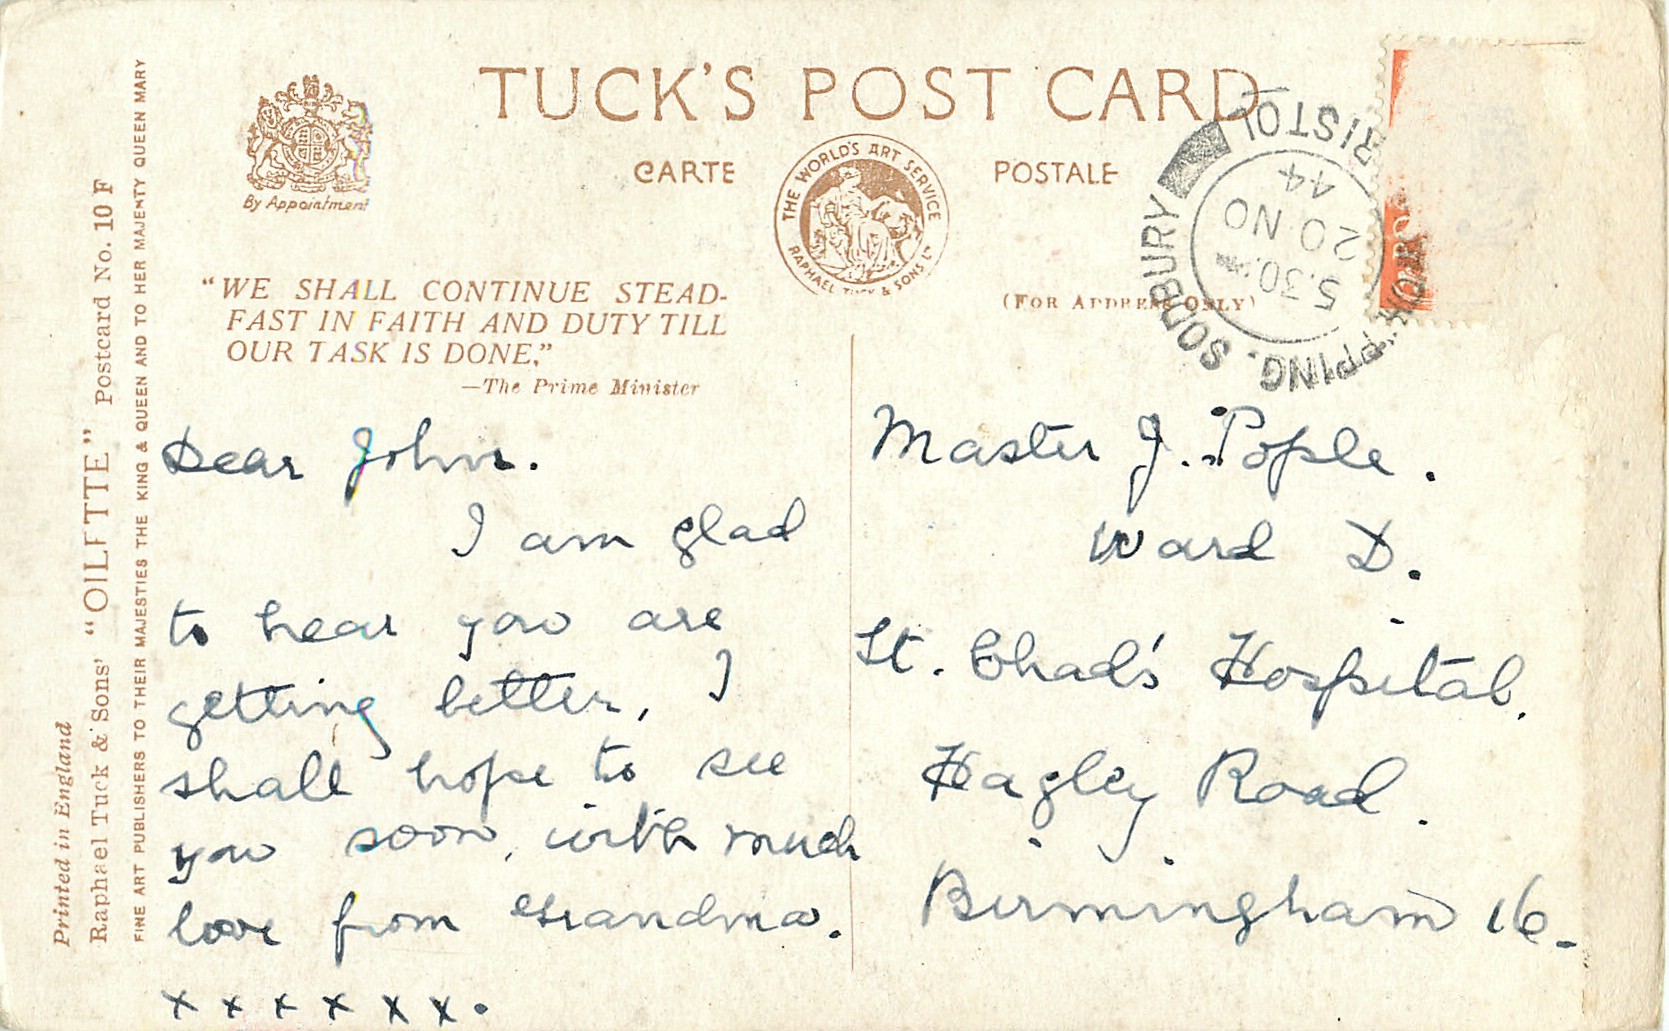 TUCK'S POST CARD
CARTE POSTALE
By Appointment
THE WORLD'S ART SERVICE
RAPHAEL TUCK & SONS LD
"WE SHALL CONTINUE STEAD-
FAST IN FAITH AND DUTY TILL
OUR TASK IS DONE."
—The Prime Minister
(FOR ADDRESS ONLY)
CHIPPING. SODBURY
BRISTOL
5.30 PM
20 NO
44
Printed in England
Raphael Tuck & Sons' "OILETTE" Postcard No. 10 F
FINE ART PUBLISHERS TO THEIR MAJESTIES THE KING & QUEEN AND TO HER MAJESTY QUEEN MARY
Dear John.
I am glad
to hear you are
getting better, I
shall hope to see
you soon, with much
love from Grandma.
x x x x x x.
Master J. Pople.
Ward D.
St. Chad's Hospital.
Hagley Road.
Birmingham 16.